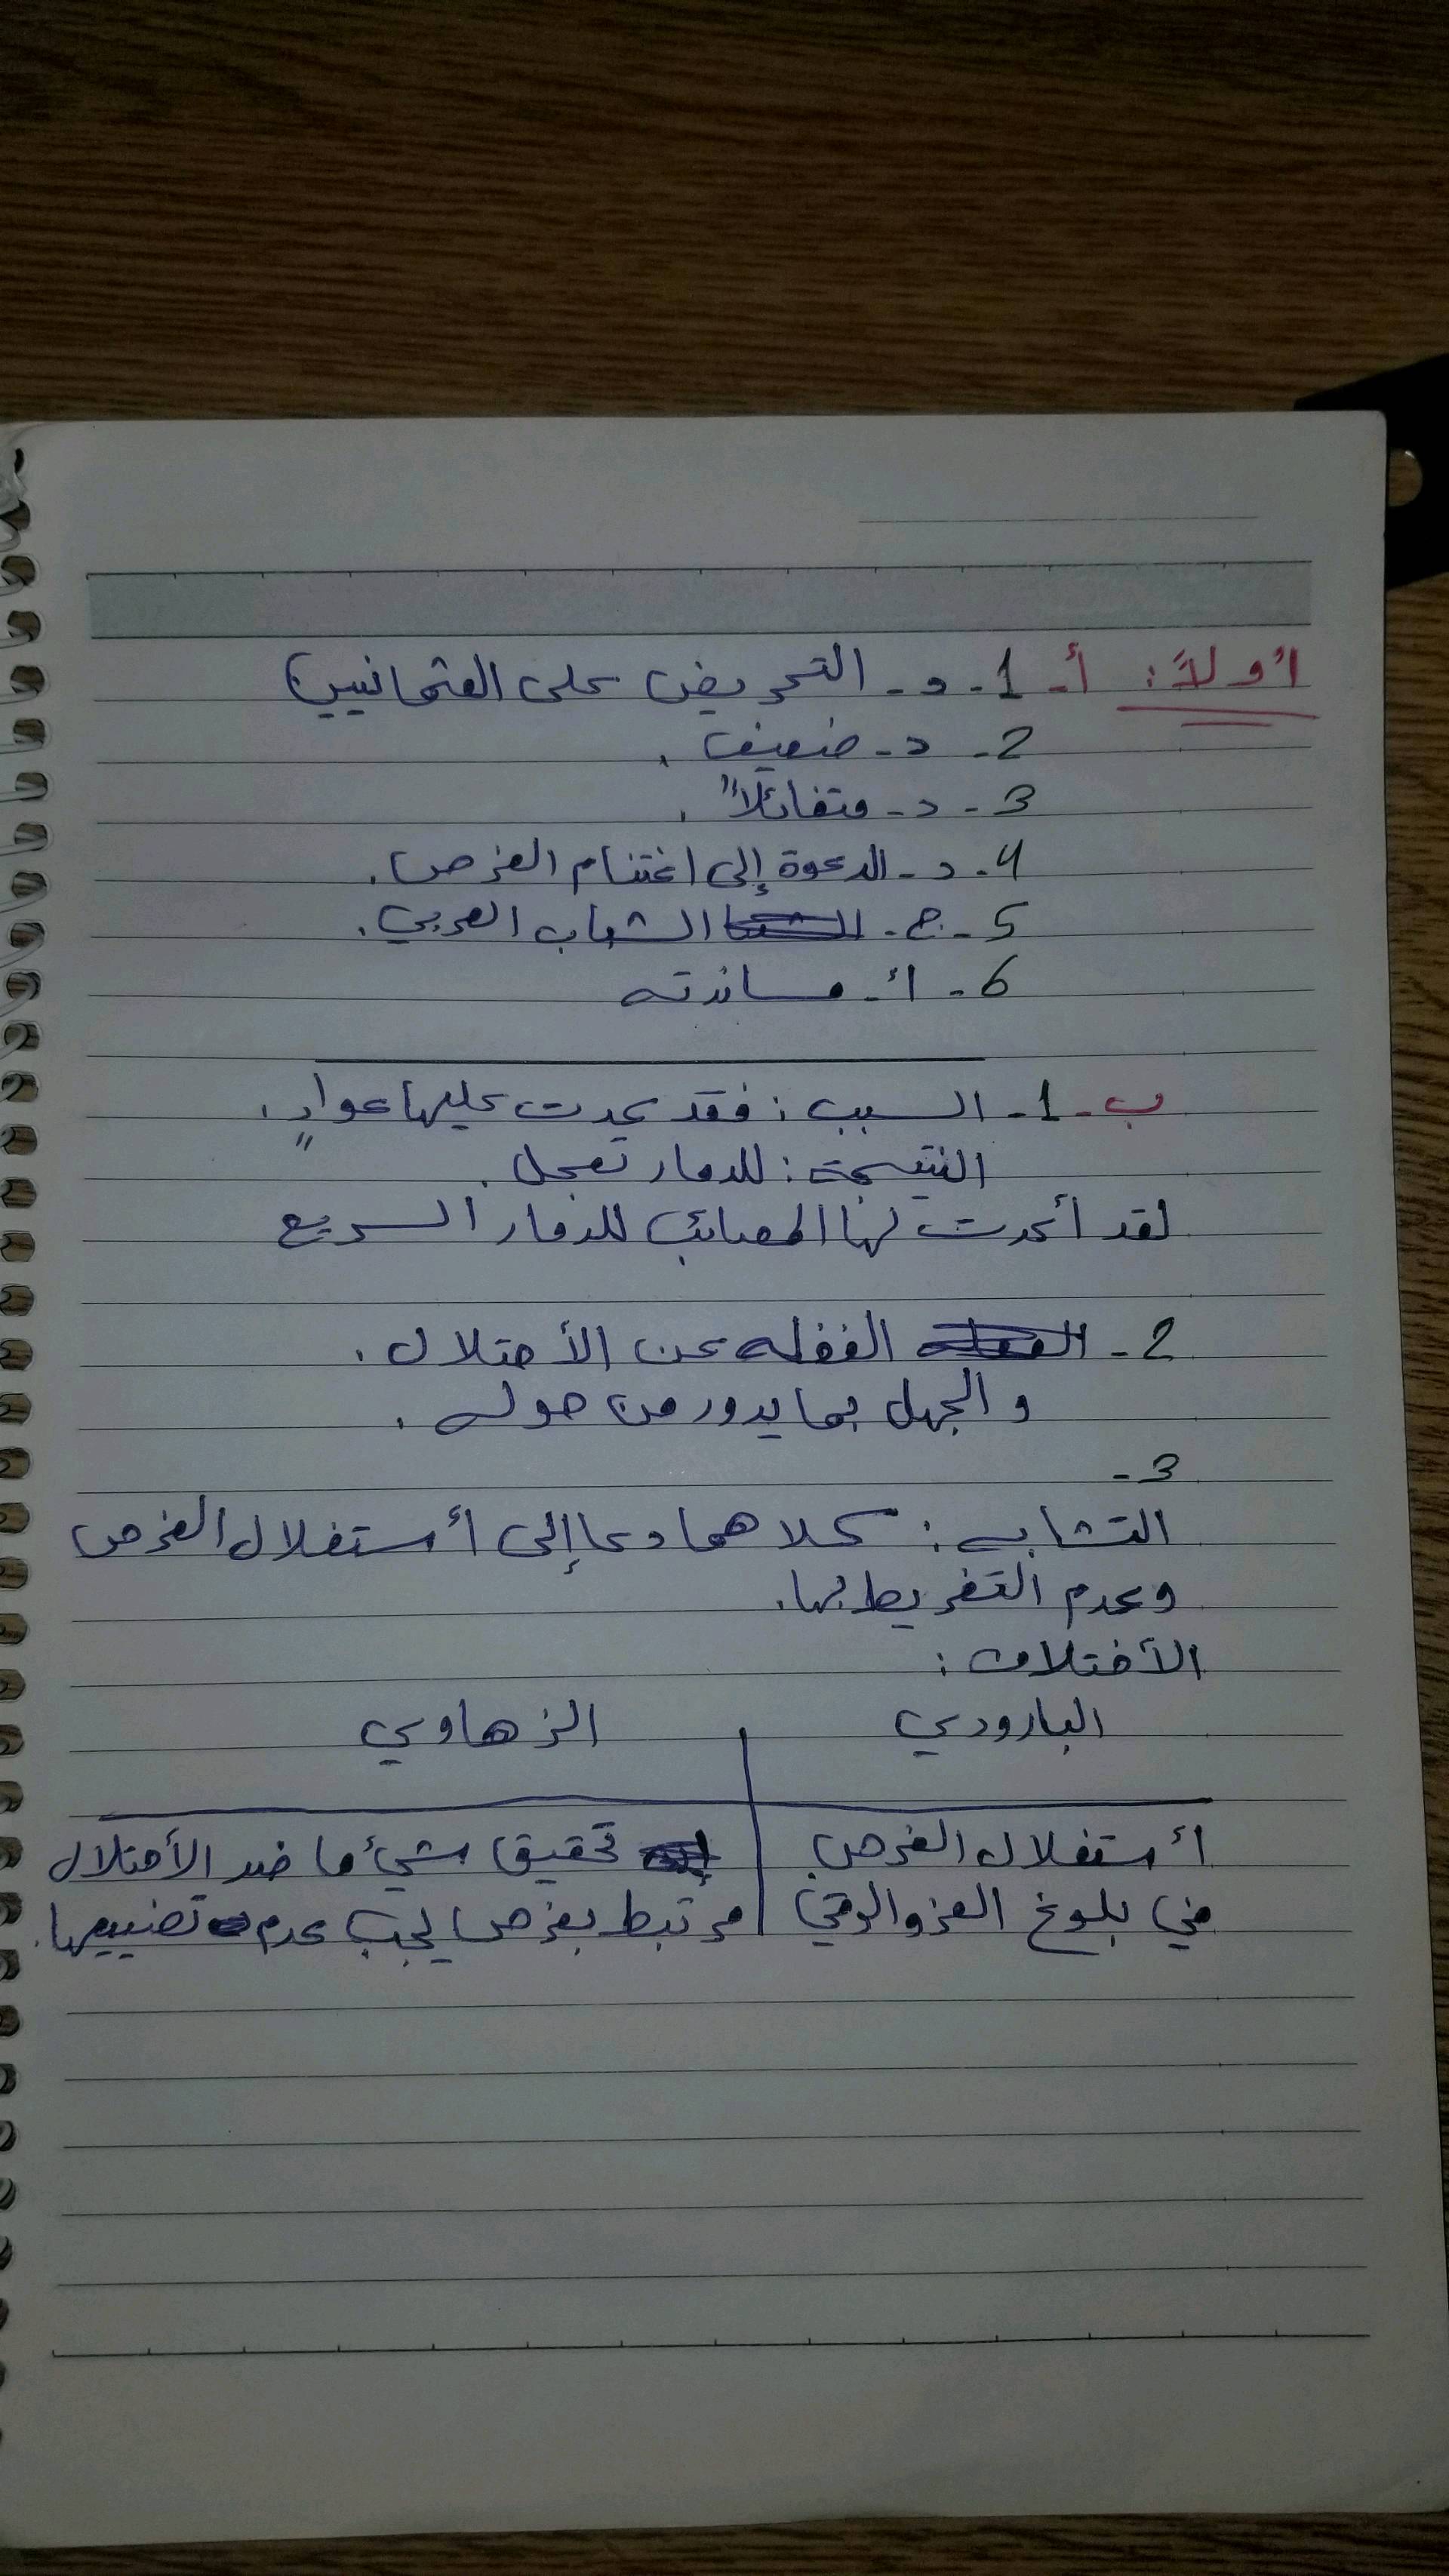 أولاً: أ- 1- د- التحريض على العثمانيين
2- د- ضعيف.
3- د- متفائلاً".
4- د- الدعوة إلى اغتنام الفرص.
5- ج- الشباب العربي.
6- أ- مساندته
ب- 1- السبب: فقد عدت عليها عوادٍ.
النتيجة: للدمار تعجل.
لقد أعدت لها المصائب للدمار السريع
2- الغفله عن الأحتلال.
و الجهل بما يدور من حوله.
3-
التشابه: كلاهما دعا إلى أستغلال الفرص
وعدم التفريط بها.
الأختلاف:
البارودي | الزهاوي
أستغلال الفرص | تحقيق شيءٍ ما ضد الأحتلال
في بلوغ العز والرقي | مرتبط بفرص يجب عدم تضييعها.